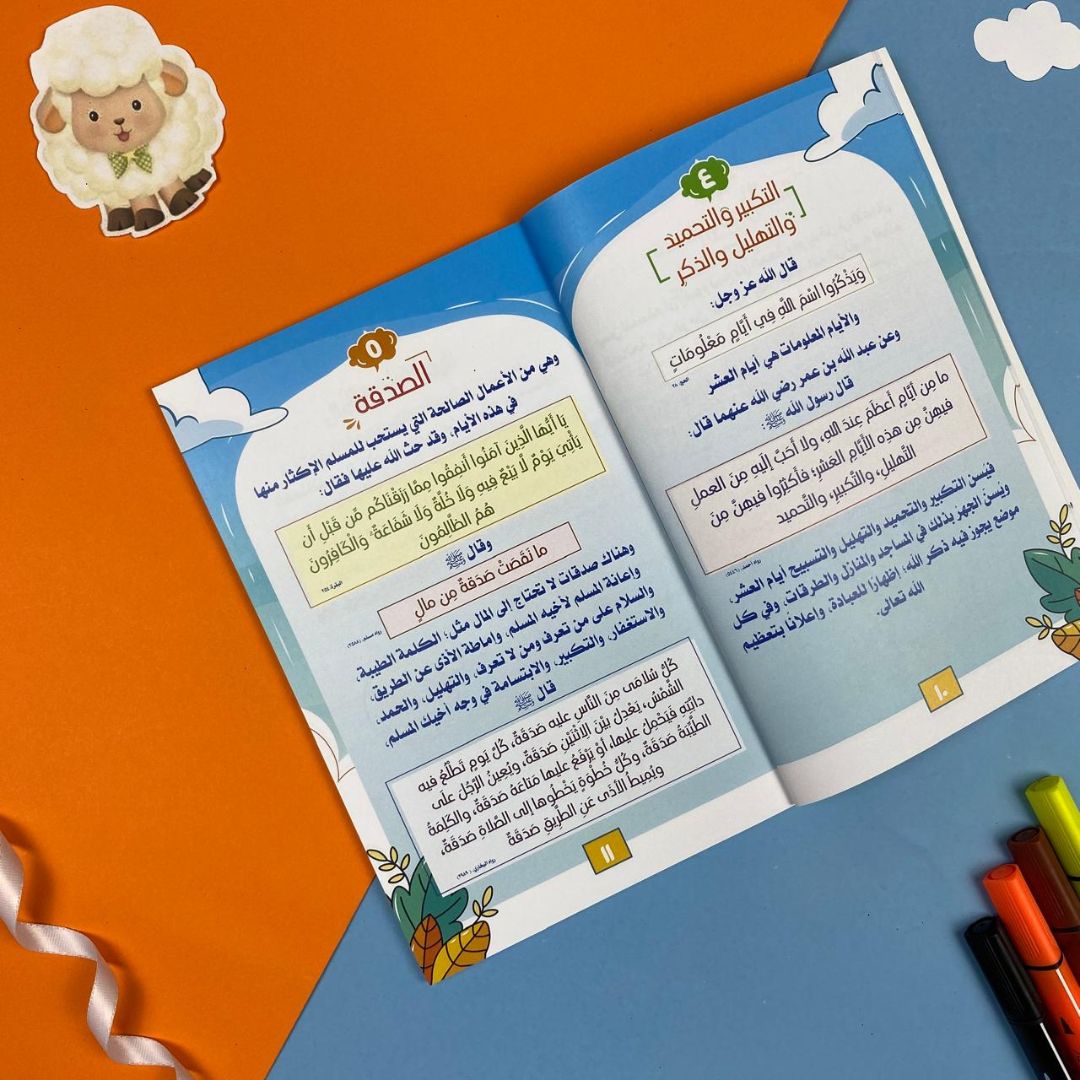 ٤
التكبير والتحميد
والتهليل والذكر
قال الله عز وجل:
وَيَذْكُرُوا اسْمَ اللَّهِ فِي أَيَّامٍ مَعْلُومَاتٍ
الحج: ٢٨
والأيام المعلومات هي أيام العشر
وعن عبد الله بن عمر رضي الله عنهما قال:
قال رسول الله ﷺ:
ما مِن أيَّامٍ أعظَمُ عِندَ اللهِ، ولا أَحَبُّ إلَيهِ مِنَ العملِ
فيهنَّ مِن هذِه الأيَّامِ العَشرِ؛ فأكثِرُوا فيهِنَّ مِنَ
التَّهليلِ، والتَّكبيرِ، والتَّحميدِ
رواه أحمد: (٥٤٤٦)
فيسن التكبير والتحميد والتهليل والتسبيح أيام العشر،
ويسن الجهر بذلك في المساجد والمنازل والطرقات، وفي كل
موضع يجوز فيه ذكر الله؛ إظهارًا للعبادة، وإعلانًا بتعظيم
الله تعالى.
١٠
٥
الصدقة
وهي من الأعمال الصالحة التي يستحب للمسلم الإكثار منها
في هذه الأيام، وقد حث الله عليها فقال:
يَا أَيُّهَا الَّذِينَ آمَنُوا أَنفِقُوا مِمَّا رَزَقْنَاكُم مِّن قَبْلِ أَن
يَأْتِيَ يَوْمٌ لَّا بَيْعٌ فِيهِ وَلَا خُلَّةٌ وَلَا شَفَاعَةٌ ۗ وَالْكَافِرُونَ
هُمُ الظَّالِمُونَ
البقرة: ٢٥٤
وقال ﷺ
ما نَقَصَتْ صَدَقةٌ مِن مالٍ
رواه مسلم: (٢٥٨٨)
وهناك صدقات لا تحتاج إلى المال مثل: الكلمة الطيبة،
وإعانة المسلم لأخيه المسلم، وإماطة الأذى عن الطريق،
والسلام على من تعرف ومن لا تعرف، والتهليل، والحمد،
والاستغفار، والتكبير، والابتسامة في وجه أخيك المسلم،
قال ﷺ
كُلُّ سُلَامَى مِنَ النَّاسِ عليه صَدَقَةٌ، كُلَّ يَومٍ تَطْلُعُ فيه
الشَّمْسُ، يَعْدِلُ بيْنَ الِاثْنَيْنِ صَدَقَةٌ، ويُعِينُ الرَّجُلَ علَى
دابَّتِهِ فَيَحْمِلُ عليها، أوْ يَرْفَعُ عليها مَتَاعَهُ صَدَقَةٌ، والكَلِمَةُ
الطَّيِّبَةُ صَدَقَةٌ، وكُلُّ خُطْوَةٍ يَخْطُوها إلى الصَّلاةِ صَدَقَةٌ،
ويُمِيطُ الأذَى عَنِ الطَّرِيقِ صَدَقَةٌ
رواه البخاري: (٢٩٨٩)
١١